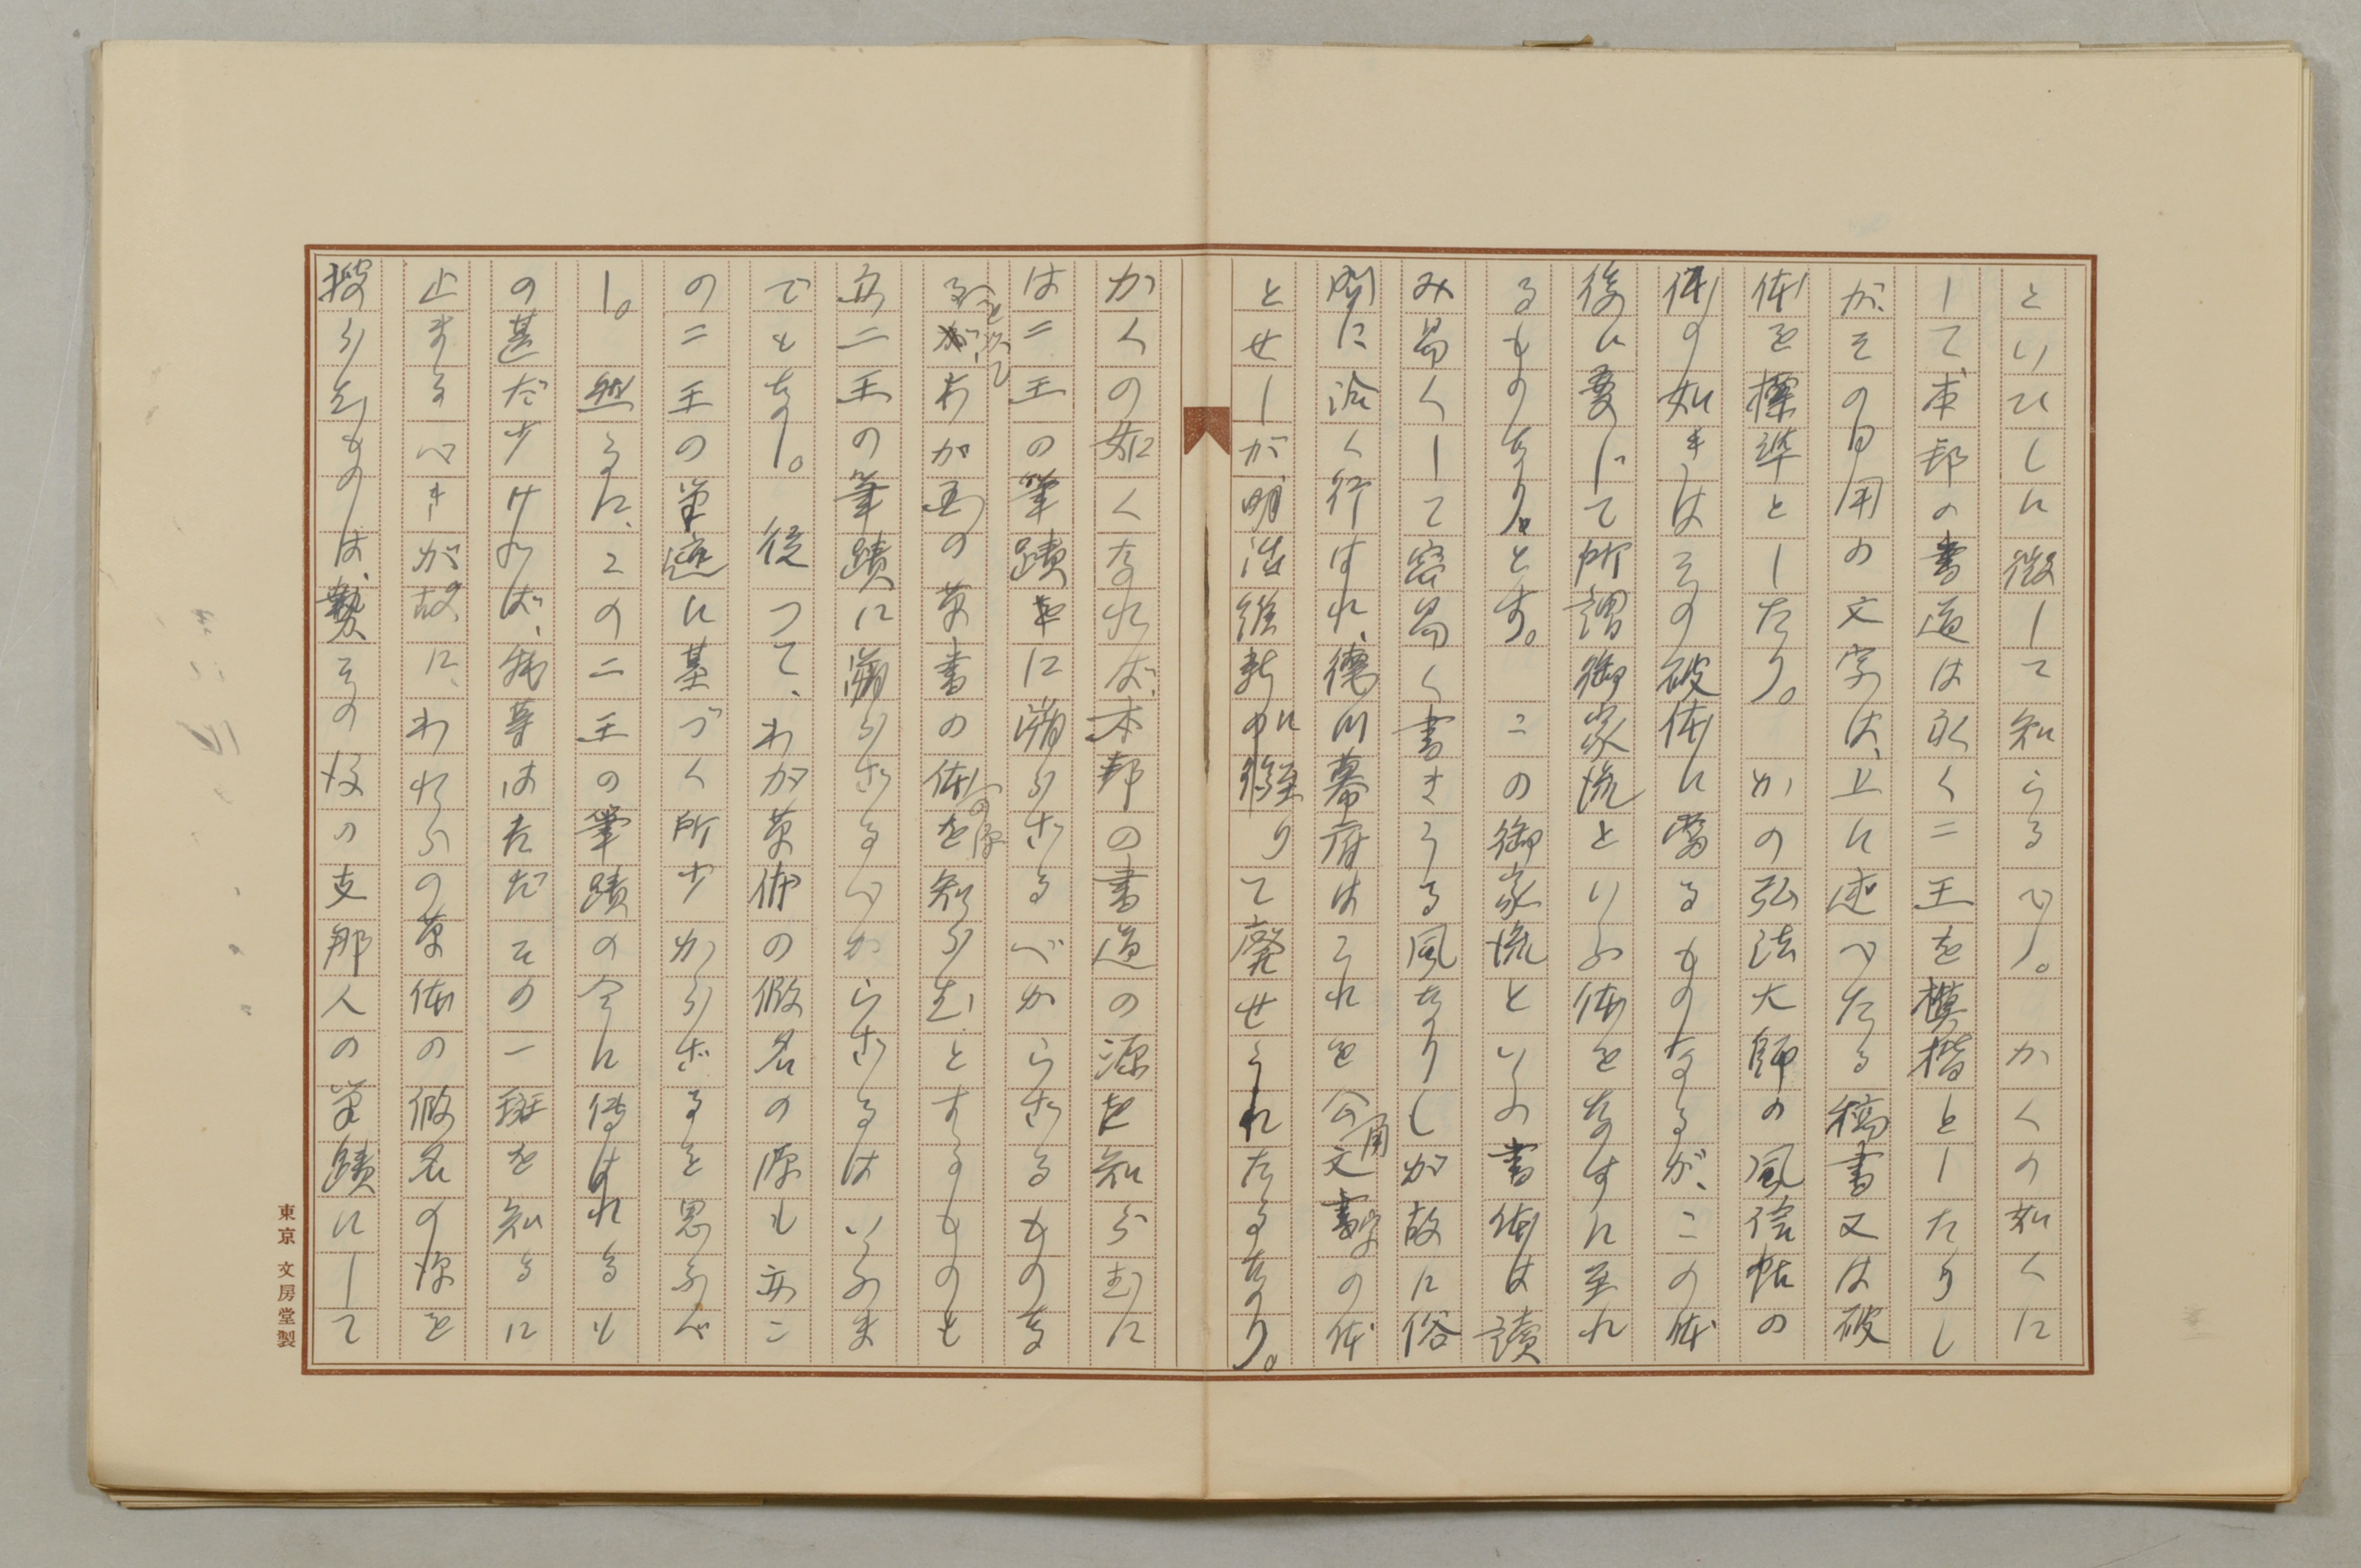 といひしに徴して知らるべし。かくの如くに
して、本邦の書道は永く二王を模楷としたりし
が、その日用の文字は、上に述べたる稿書又は破
体を標準としたり。かの弘法大師の風信帖の
体の如きはその破体に當るものなるが、この体
後に変じて所謂御家流といふ体をなすに至れ
るものなり。とす。この御家流といふ書体は讀
み易くして容易く書きうる風なりしが故に俗
間に洽く行はれ、徳川幕府はこれを公用文書字の体
とせしが、明治維新に際りて廃せられたるなり。
かくの如くなれば、本邦の書道の源を知らむに
は二王の筆蹟に溯らざるべからざるものなる
を以てわが国の草書の体の源を知らむとするものも
亦二王の筆蹟に溯らざるべからざるはいふま
でもなし。従つて、わが草体の假名の源も亦こ
の二王の筆迹に基づく所少からざるを思ふべ
し。然るに、この二王の筆蹟の今に傳はれるも
の甚だ少ければ、我等はただその一斑を知るに
止まるべきが故に、われらの草体の假名の源を
探らむものは、勢その後の支那人の筆蹟にして
東京 文房堂製